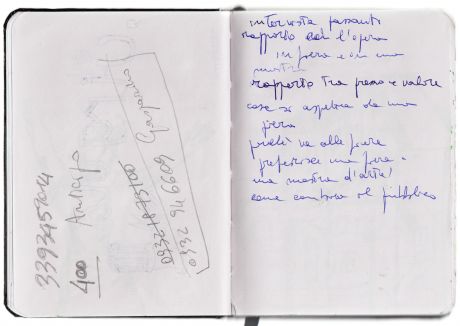 3393457614
400 Anticipo
0932 946609 Gasparino
intervista passanti
rapporto con l'opera
in fiera e in una
mostra
rapporto tra prezzo e valore
cosa si aspetta da una
fiera
perché va alle fiere
preferisce una fiera o
una mostra d'arte?
come cambia il pubblico